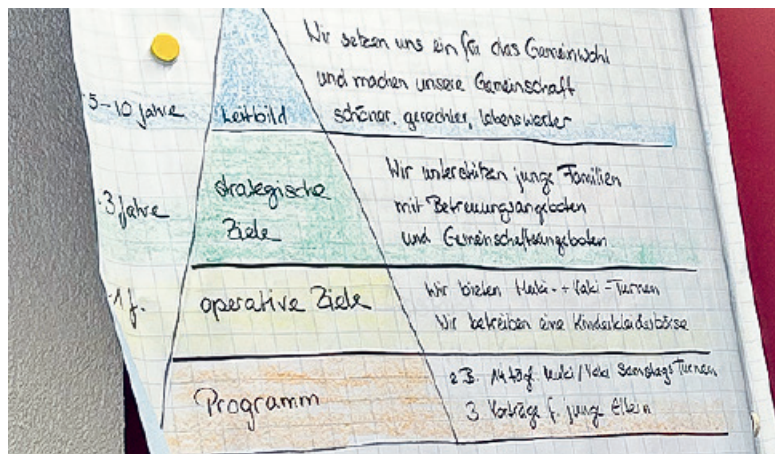 5-10 Jahre
Leitbild
Wir setzen uns ein für das Gemeinwohl
und machen unsere Gemeinschaft
schöner, gerechter, lebenswerter
3 Jahre
strategische
Ziele
Wir unterstützen junge Familien
mit Betreuungsangeboten
und Gemeinschaftsangeboten
1 J.
operative Ziele
Wir bieten Muki- + Vaki-Turnen
Wir betreiben eine Kinderkleiderbörse
Programm
z.B. 14tägl. Muki/Vaki Samstags Turnen
3 Vorträge f. junge Eltern